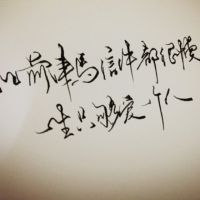 从前车馬信件都很慢
一生只够爱一个人